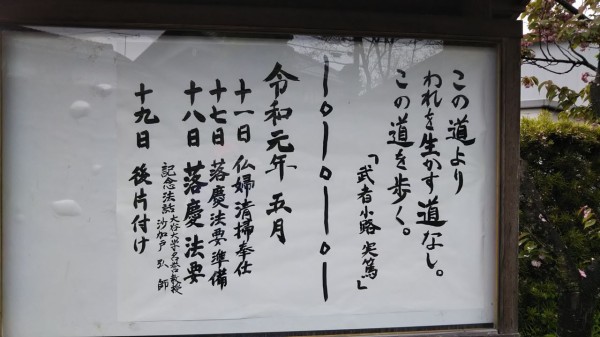 この道より
われを生かす道なし。
この道を歩く。
「武者小路 実篤」
令和元年 五月
十一日 仏婦清掃奉仕
十七日 落慶法要準備
十八日 落慶法要
記念法話 大谷大学名誉教授
沙加戸 弘 師
十九日 後片付け